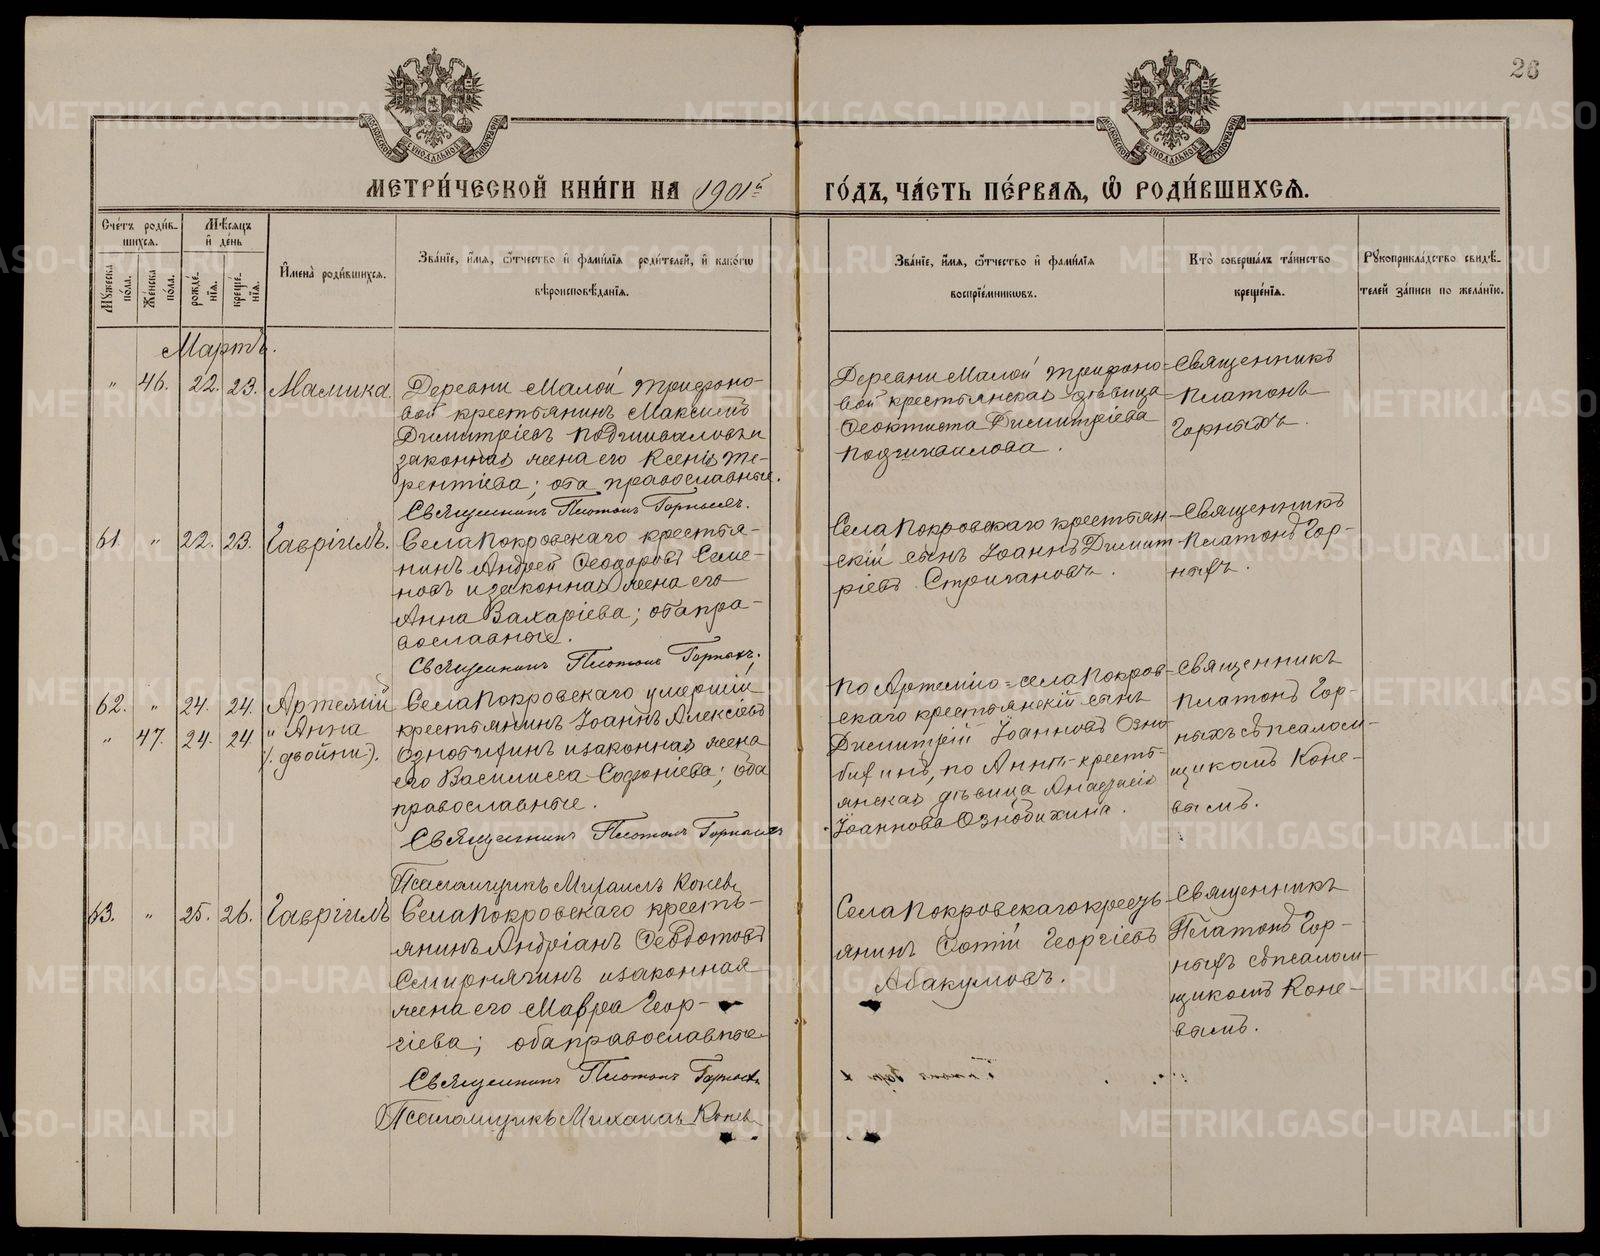 26
МЕТРИ́ЧЕСКОЙ КНИ́ГИ НА 1901й ГО́ДЪ, ЧА́СТЬ ПЕ́РВАѦ, Ѡ РОДИ́ВШИХСѦ.
Сче́тъ роди́в-
шихсѧ.
Мѣ́сѧцъ
и҆ день
Мꙋ́жеска
по́ла.
Же́нска
по́ла.
рожде́-
нїѧ.
креще́-
нїѧ.
И҆мена̀ роди́вшихсѧ.
Зва́нїе, и҆́мѧ, ѻ҆́тчество и҆ фами́лїѧ роди́телей, и҆ како́гѡ
вѣроисповѣ́данїѧ.
Зва́нїе, и҆́мѧ, ѻ҆́тчество и҆ фами́лїѧ
воспрїе́мникѡвъ.
Кто̀ соверша́лъ та́инство
креще́нїѧ.
Рꙋкоприкла́дство свидѣ́-
телей за́писи по жела́нїю.
Мартъ.
" 46. 22. 23. Мамика.
Деревни Малой Трифоно-
вой крестьянинъ Максимъ
Димитріевъ Подшиваловъ и
законная жена его Ксенія Те-
рентіева; оба православные.
Священникъ Платонъ Горныхъ.
Деревни Малой Трифоно-
вой крестьянская дѣвица
Феоктиста Димитріева
Подшивалова.
Священникъ
Платонъ
Горныхъ.
61. " 22. 23. Гавріилъ.
Села Покровскаго крестья-
нинъ Андрей Феодоровъ Семе-
новъ и законная жена его
Анна Захаріева; оба пра-
вославные.
Священникъ Платонъ Горныхъ.
Села Покровскаго крестьян-
скій сынъ Іоаннъ Димит-
ріевъ Стригановъ.
Священникъ
Платонъ Гор-
ныхъ.
62. " 24. 24. Артемій
" 47. 24. 24. " Анна
(двойни).
Села Покровскаго умершій
крестьянинъ Іоаннъ Алексіевъ
Ознобихинъ и законная жена
его Василисса Софоніева; оба
православные.
Священникъ Платонъ Горныхъ
Псаломщикъ Михаилъ Коневъ
По Артемію - села Покров-
скаго крестьянскій сынъ
Димитрій Іоанновъ Озно-
бихинъ, по Аннѣ - кресть-
янская дѣвица Анастасія
Іоаннова Ознобихина.
Священникъ
Платонъ Гор-
ныхъ съ псалом-
щикомъ Коне-
вымъ.
63. " 25. 26. Гавріилъ
Села Покровскаго кресть-
янинъ Андріанъ Феодотовъ
Смирнягинъ и законная
жена его Мавра Геор-
гіева; оба православные
Священникъ Платонъ Горныхъ
Псаломщикъ Михаилъ Коневъ
Села Покровскаго кресть-
янинъ Фотій Георгіевъ
Абакумовъ.
Священникъ
Платонъ Гор-
ныхъ съ псалом-
щикомъ Коне-
вымъ.